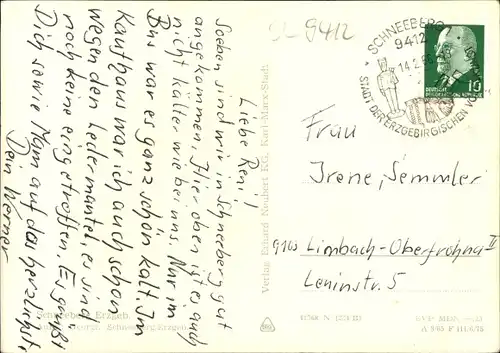 Liebe Reni!
Soeben sind wir in Schneeberg gut
angekommen. Hier oben ist es auch
nicht kälter wie bei uns. Nur im
Bus war es ganz schön kalt. Im
Kaufhaus war ich auch schon
wegen den Ledermantel, es sind
noch keine eingetroffen. Es grüßt
Dich sowie Mam auf das herzlichste
Dein Werner
Schneeberg Erzgeb.
Verlag Erhard Neubert KG, Karl-Marx-Stadt
9412
SCHNEEBERG
9412
14.2.66
STADT DER ERZGEBIRGISCHEN VOLKSKUNST
10
DEUTSCHE
DEMOKRATISCHE REPUBLIK
Frau
Irene Semmler
9103 Limbach-Oberfrohna II
Leninstr. 5